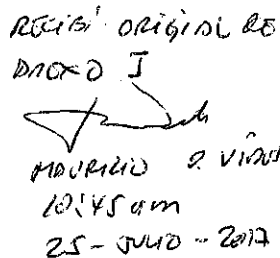 RECIBÍ ORIGINAL DE
ANEXO I
MAURICIO D.
10:45 am
25 - JULIO - 2017